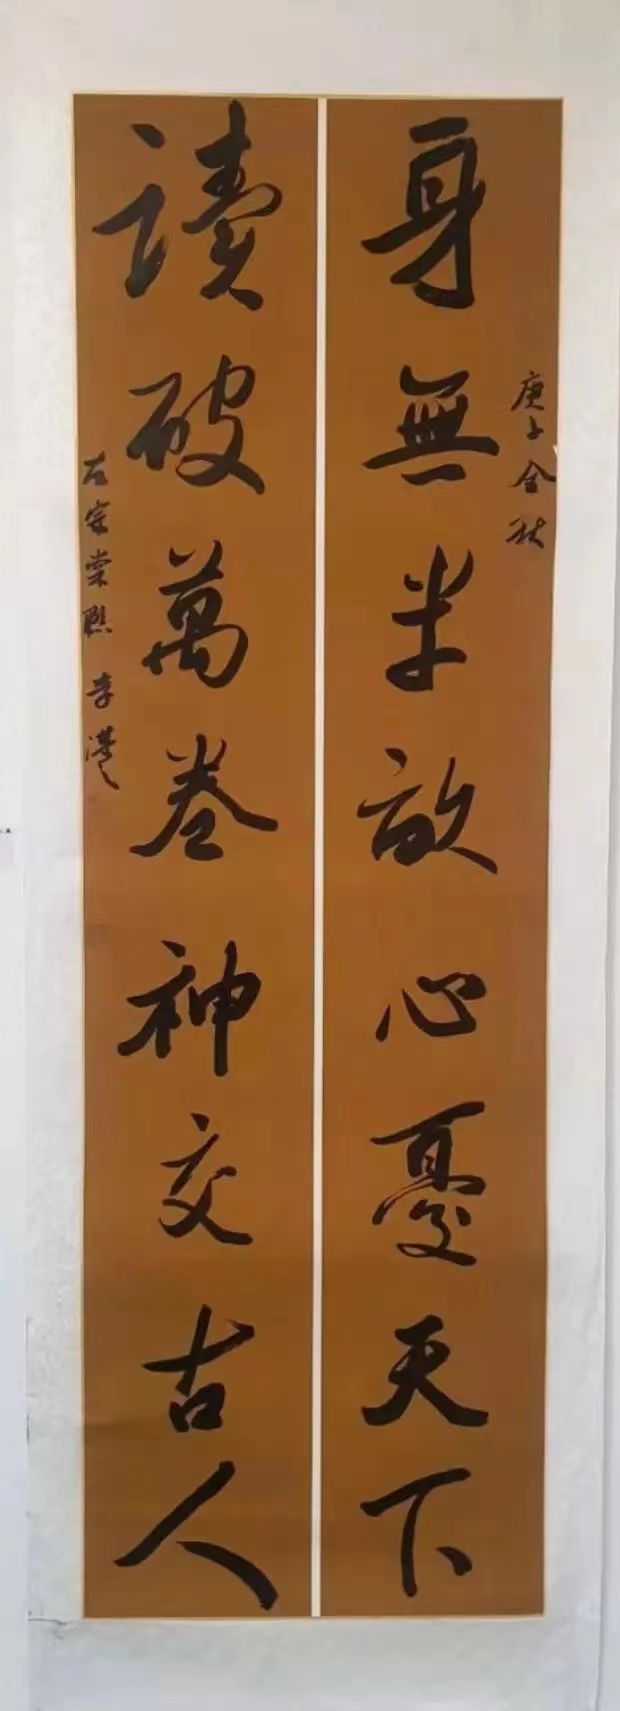 身無半畝心憂天下
庚子金秋
讀破萬卷神交古人
左宗棠聯 李漢